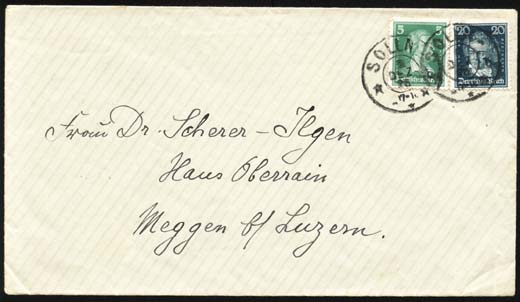 5 20 20
Deutsches Reich
SOLLN
Frau Dr. Scherer-Ilgen
Haus Oberrain
Meggen b/ Luzern.